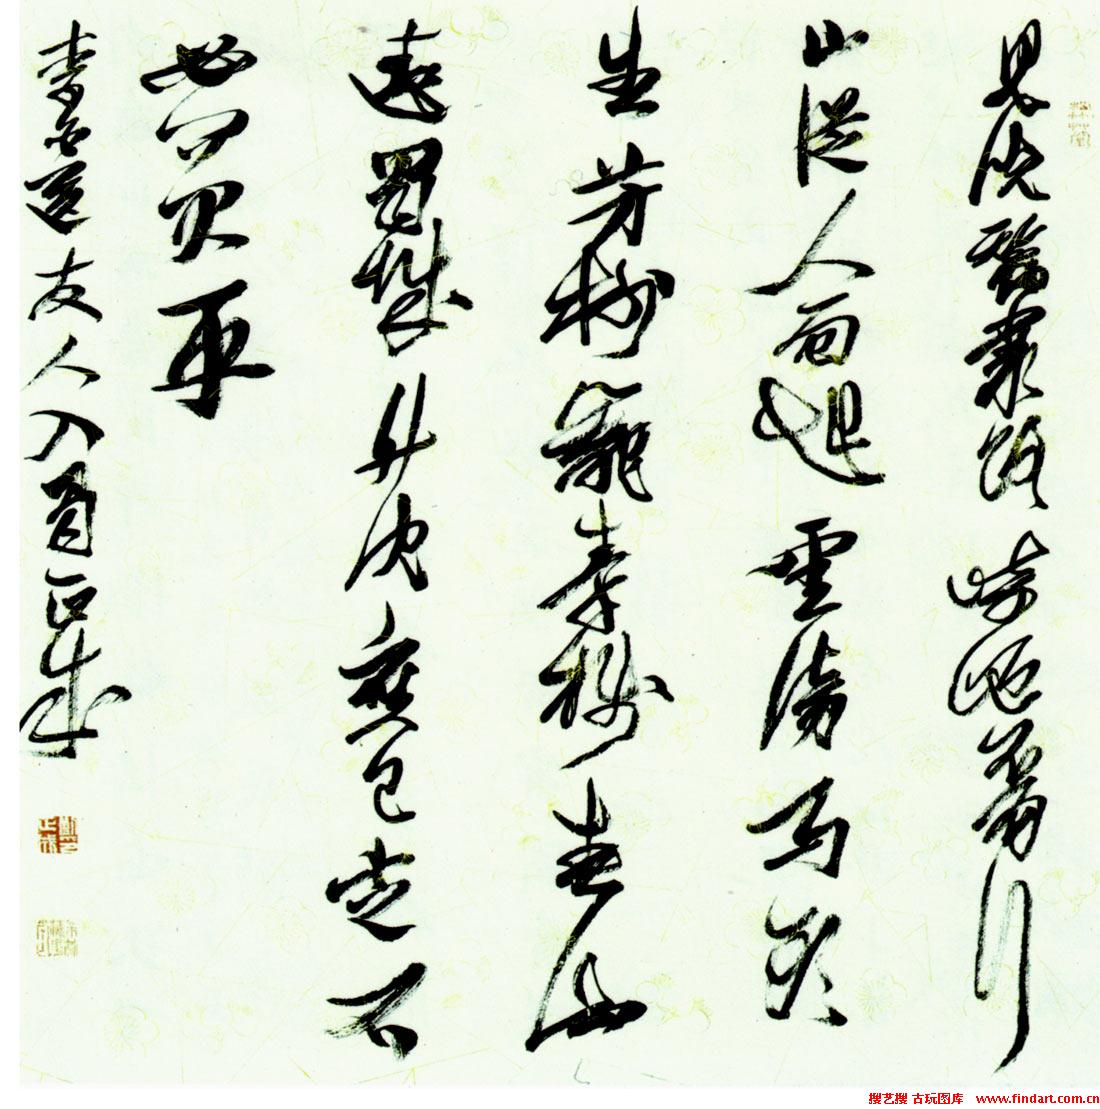 見說蠶叢路崎嶇不易行
山從人面起雲傍馬頭
生芳樹籠秦棧春流
遶蜀城升沉應已定不
必問君平
李白送友人入蜀正成
搜艺搜 古玩图库 www.findart.com.cn